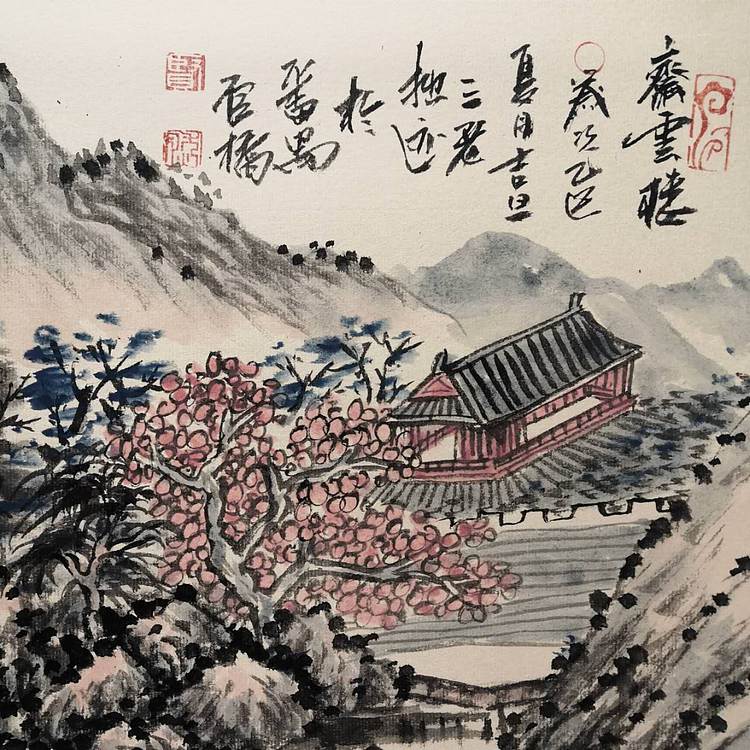 齋雲樓
歲次乙巳
夏月吉旦
三
拙迹
於
番禺
官橋